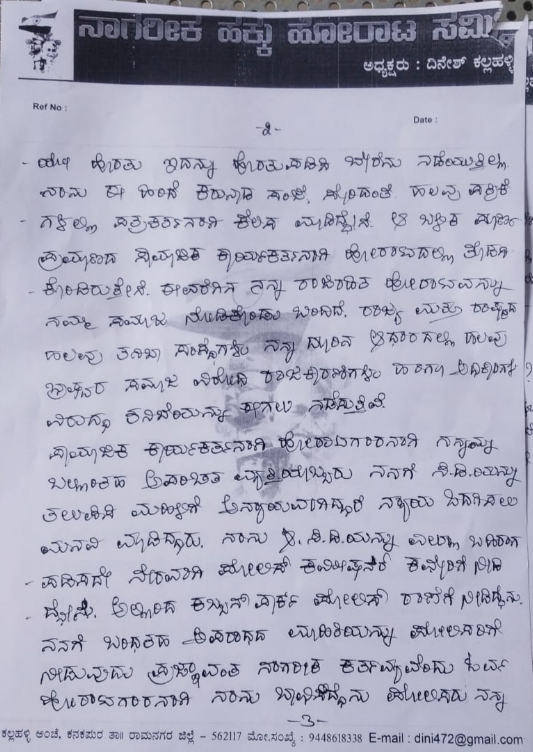 ನಾಗರೀಕ ಹಕ್ಕು ಹೋರಾಟ ಸಮಿತಿ
ಅಧ್ಯಕ್ಷರು : ದಿನೇಶ್ ಕಲ್ಲಹಳ್ಳಿ
Ref No :
Date :
-೨-
ಹೊರತು ಇದನ್ನು ಹೊರತುಪಡಿಸಿ ಬೇರೆನು ನಡೆಯುತ್ತಿಲ್ಲ
ನಾನು ಈ ಹಿಂದೆ ಕರುನಾಡ ಸಂಜೆ, ಹಲವು ಪತ್ರಿಕೆ
ಗಳಲ್ಲಿ ಪತ್ರಕರ್ತನಾಗಿ ಕೆಲಸ ಮಾಡಿದ್ದೇನೆ. ಆ ಬಳಿಕ ಪೂರ್ಣ
ಪ್ರಮಾಣದ ಸಾಮಾಜಿಕ ಕಾರ್ಯಕರ್ತನಾಗಿ ಹೋರಾಟದಲ್ಲಿ ತೊಡಗಿ
ಕೊಂಡಿರುತ್ತೇನೆ. ಈವರೆಗಿನ ನನ್ನ ರಾಜಿರಹಿತ ಹೋರಾಟವನ್ನು
ನಮ್ಮ ಸಮಾಜ ನೋಡಿಕೊಂಡು ಬಂದಿದೆ. ರಾಜ್ಯ ಮತ್ತು ರಾಷ್ಟ್ರದ
ಹಲವು ತನಿಖಾ ಸಂಸ್ಥೆಗಳು ನನ್ನ ದೂರಿನ ಆಧಾರದಲ್ಲಿ ಹಲವು
ಭ್ರಷ್ಟರ ಸಮಾಜ ವಿರೋಧಿ ರಾಜಕಾರಣಿಗಳು ಹಾಗೂ ಅಧಿಕಾರಿಗಳ
ವಿರುದ್ಧ ತನಿಖೆಯನ್ನು ಈಗಲು ನಡೆಸುತ್ತಿವೆ.
ಸಾಮಾಜಿಕ ಕಾರ್ಯಕರ್ತನಾಗಿ ಹೋರಾಟಗಾರನಾಗಿ ನನ್ನನ್ನು
ಬಲ್ಲಂತಹ ಅಪರಿಚಿತ ವ್ಯಕ್ತಿಯೊಬ್ಬರು ನನಗೆ ಸಿ.ಡಿ.ಯನ್ನು
ತಲುಪಿಸಿ ಮಹಿಳೆಗೆ ಅನ್ಯಾಯವಾಗಿದ್ದು ನ್ಯಾಯ ಒದಗಿಸಲು
ಮನವಿ ಮಾಡಿದ್ದರು. ನಾನು ಆ ಸಿ.ಡಿ.ಯನ್ನು ಎಲ್ಲೂ ಬಹಿರಂಗ
ಪಡಿಸದೇ ನೇರವಾಗಿ ಪೋಲಿಸ್ ಕಮೀಷನರ್ ಕಚೇರಿಗೆ ನೀಡಿ
ದ್ದೇನೆ. ಅಲ್ಲಿಂದ ಕಬ್ಬನ್ ಪಾರ್ಕ್ ಪೋಲಿಸ್ ಠಾಣೆಗೆ ನೀಡಿದ್ದೆನು.
ನನಗೆ ಬಂದಂತಹ ಅಪರಾಧದ ಮಾಹಿತಿಯನ್ನು ಪೋಲಿಸರಿಗೆ
ನೀಡುವುದು ಪ್ರಜ್ಞಾವಂತ ನಾಗರೀಕ ಕರ್ತವ್ಯವೆಂದು ಓರ್ವ
ಹೋರಾಟಗಾರನಾಗಿ ನಾನು ಭಾವಿಸಿದ್ದೆನು ಪೋಲಿಸರು ನನ್ನ
-3-
ಕಲ್ಲಹಳ್ಳಿ ಅಂಚೆ, ಕನಕಪುರ ತಾ॥ ರಾಮನಗರ ಜಿಲ್ಲೆ - 562117 ಮೋ.ಸಂಖ್ಯೆ : 9448618338 E-mail : dini472@gmail.com